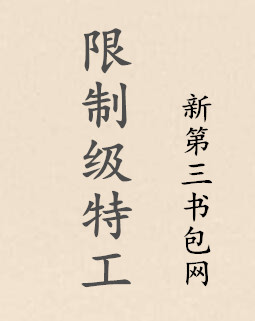 限制级特工
新第三书包网